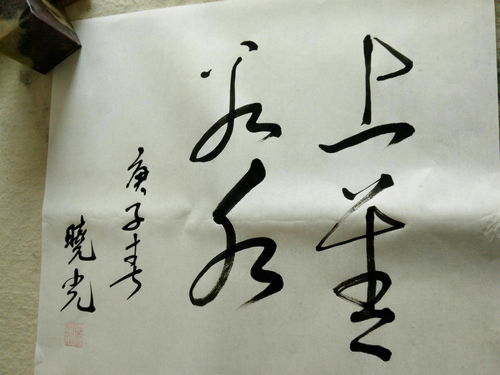 上善
若水
庚子春
曉光